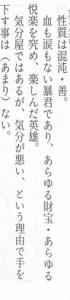 性質は混沌・善。
血も涙もない暴君であり、あらゆる財宝・あらゆる
悦楽を究め、楽しんだ英雄。
気分屋ではあるが、気分が悪い、という理由で手を
下す事は（あまり）ない。